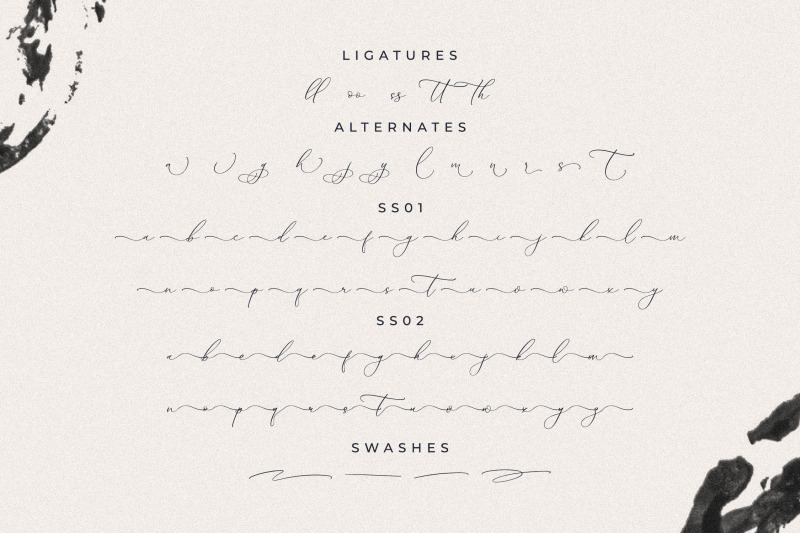 LIGATURES
ll oo ss tt th
ALTERNATES
SS01
a b c d e f g h i j k l m
n o p q r s t u v w x y
SS02
a b c d e f g h i j k l m
n o p q r s t u v w x y z
SWASHES